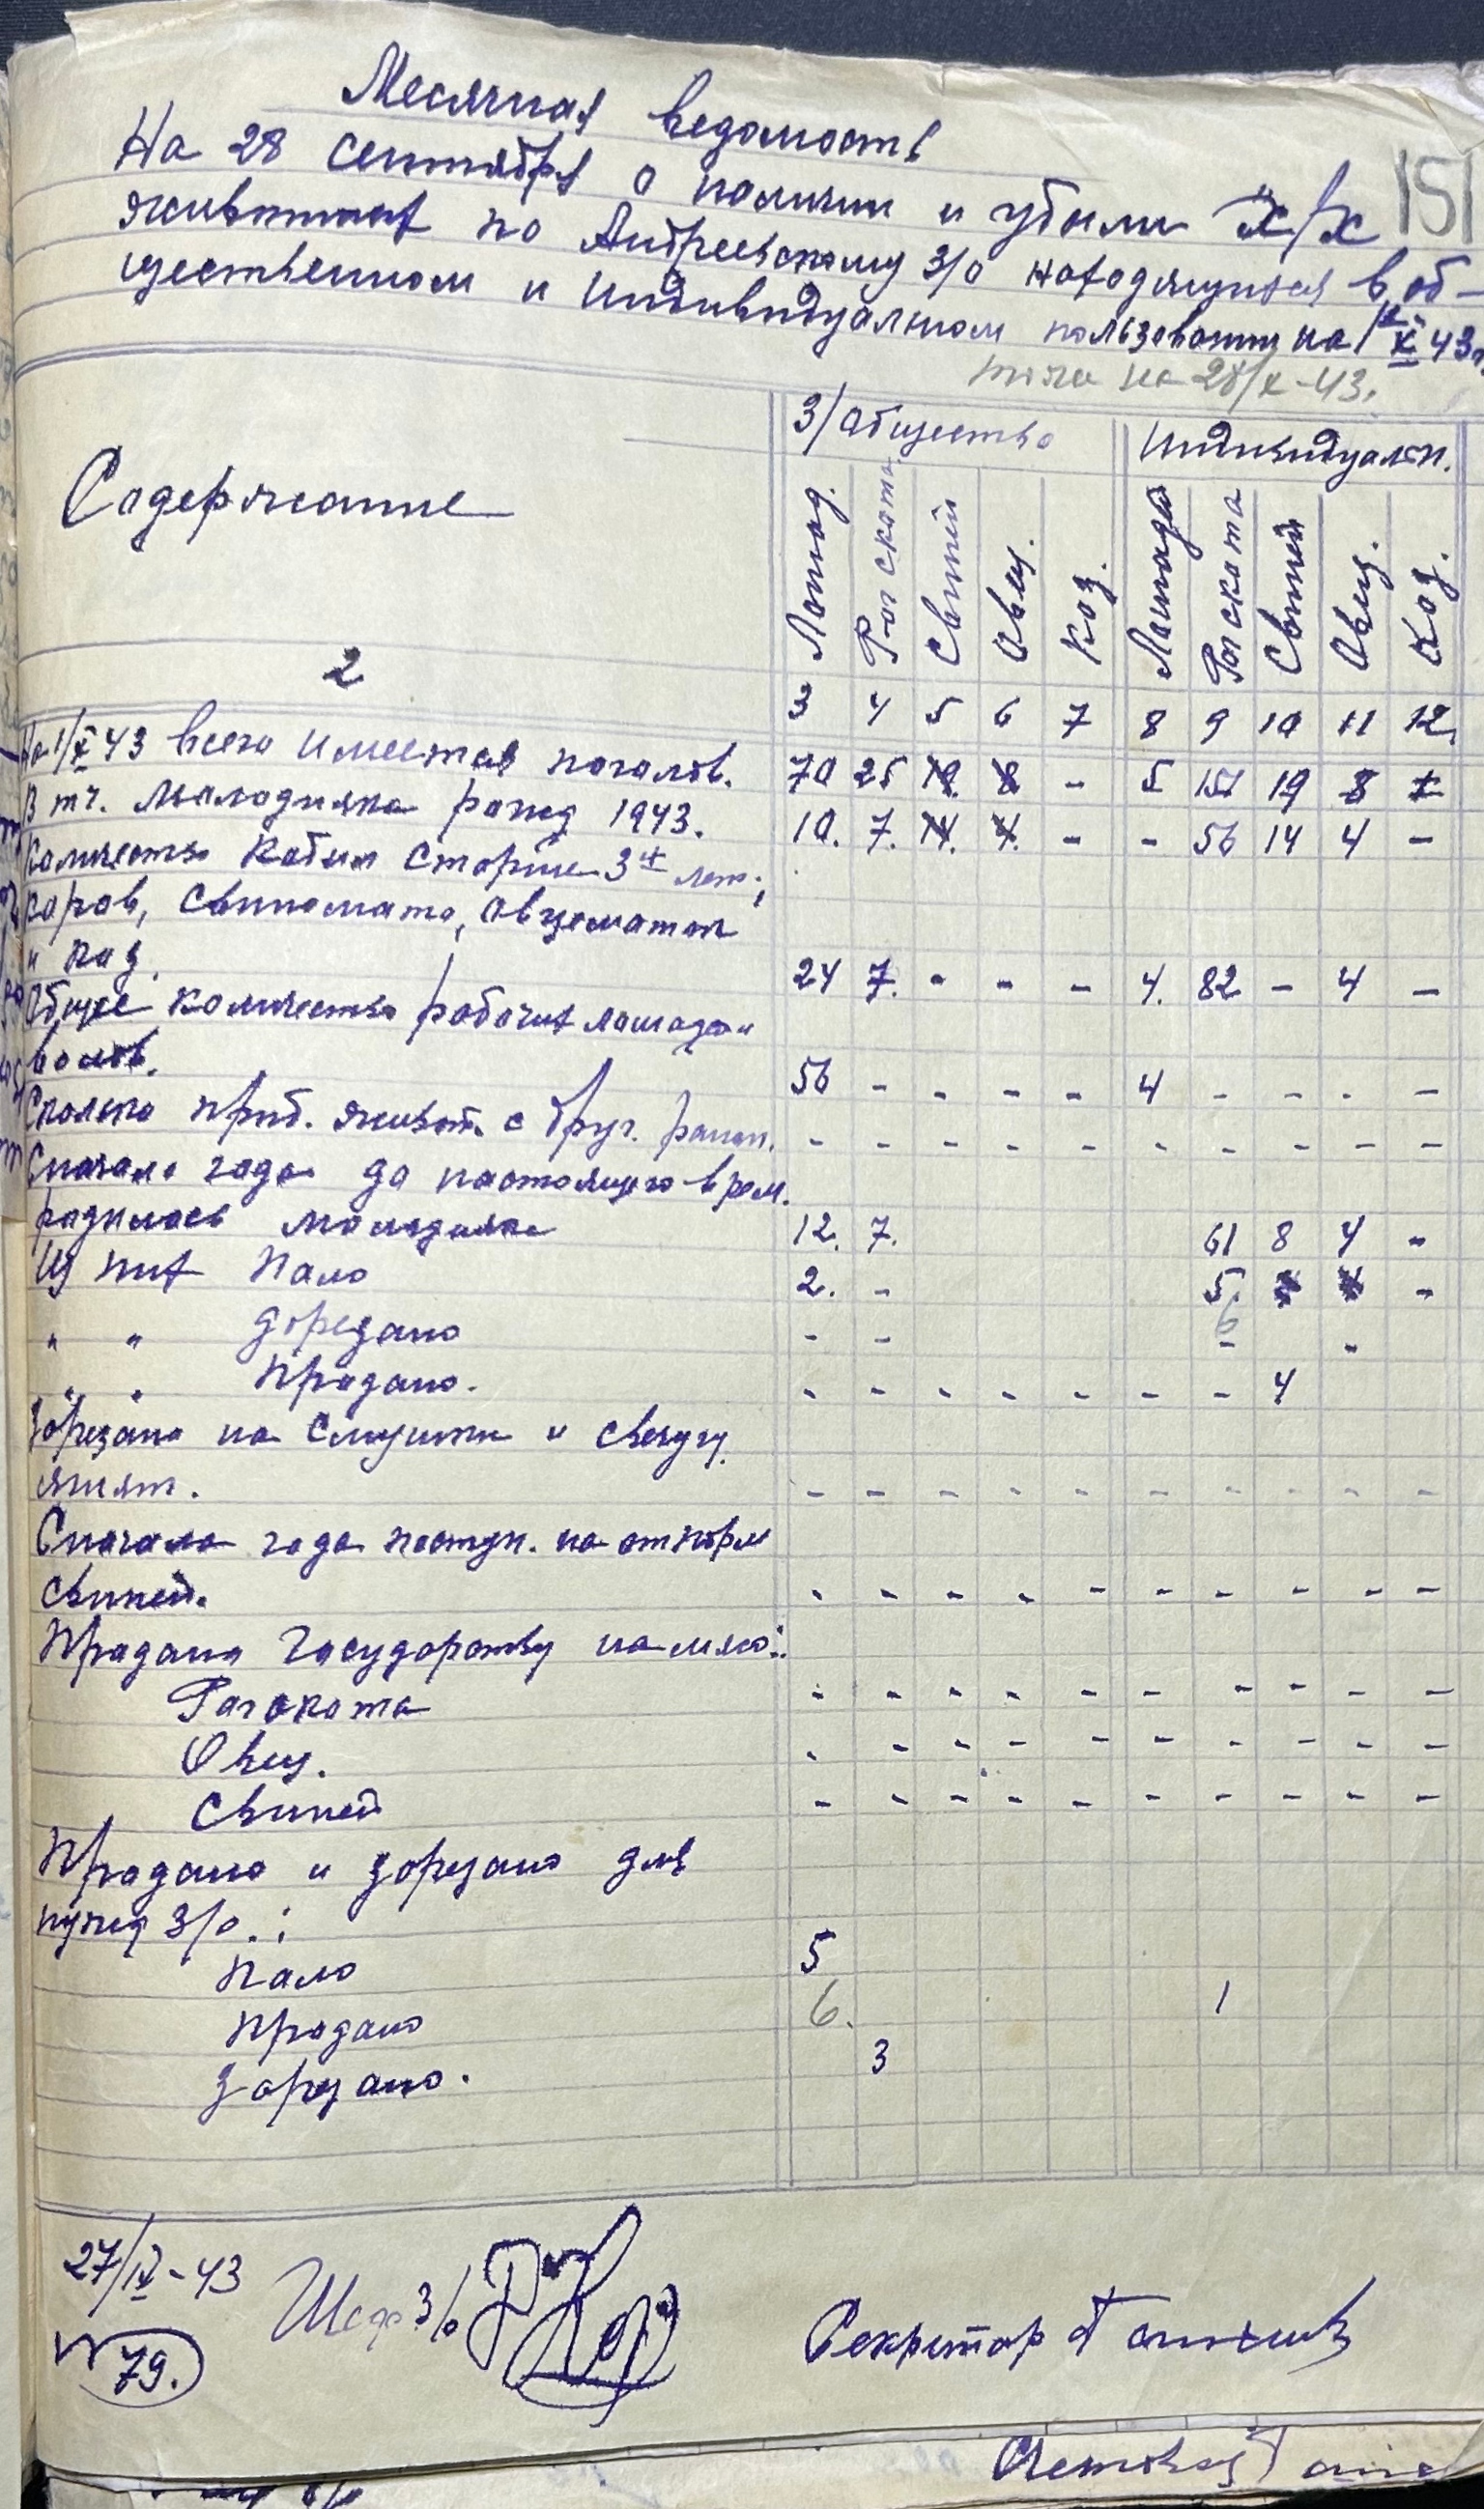 Месячная ведомость
151
На 28 сентября о наличии и убыли х/х
животных по Андреевскому З/О находящихся в об-
щественном и индивидуальном пользовании на 1 X 43 г.
на 28/X-43.
Содержание З/общество Индивидуальн.
Лошад. Рог скота Свиней Овец. Коз. Лошадей Рог скота Свиней Овец. Коз.
2 3 4 5 6 7 8 9 10 11 12
На 1/X 43 всего имеется поголов. 70 25 19 8 - 5 151 19 8
В т.ч. молодняка рожд 1943. 10. 7. 14. 4. - - 56 14 4 -
Количество кобыл старше 3х лет,
коров, свиномато, овцематок
и коз. 24 7. - - - 4. 82 - 4 -
Общее количество рабочих лошадей и
волов. 56 - - - - 4 - - - -
Сколько приб. живот. с друг. район. - - - - - - - - - -
Сначала года до настоящего врем.
родилось молодняка 12. 7. 61 8 4 -
Из них Пало 2. - 5. -
6
" " дорезано - - - -
" " Продано. - - - - - - - 4
Зарезано на смушки и
ягнят. - - - - - - - - - -
Сначала года поступ. на откорм
свиней. - - - - - - - - - -
Продано государству на мясо:
Рогскота - - - - - - - - - -
Овец. - - - - - - - - - -
Свиней - - - - - - - - - -
Продано и зарезано для
нужд З/О.:
Пало 5
Продано 6. 1
Зарезано. 3
27/IX-43 Шеф З/о
Секритар
N 79.
Счетовод